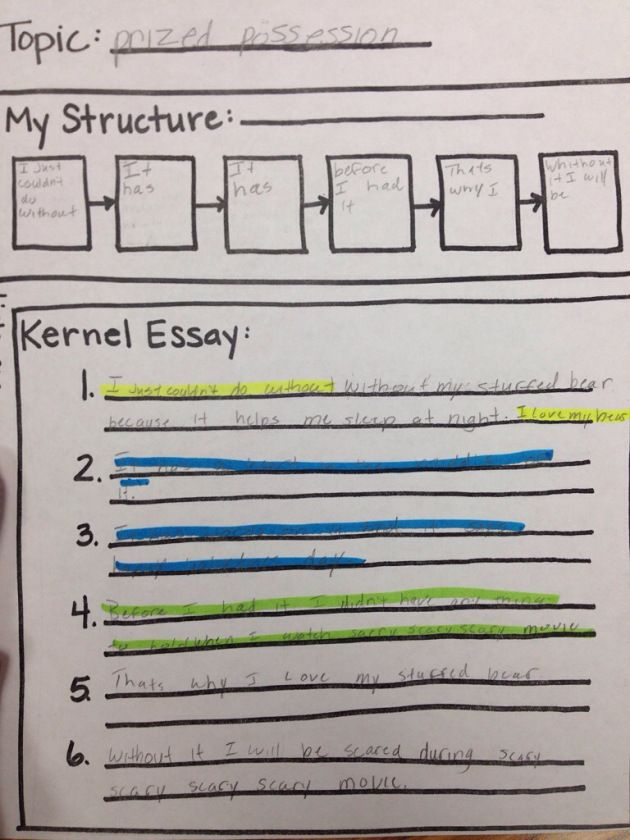 Topic: prized possession
My Structure:
I Just couldn't do without
It has
It has
before I had it
Thats why I
Whithout it I will be
Kernel Essay:
1. I Just couldn't do without without my stuffed bear
because it helps me sleep at night. I love my bear
2. It has
it.
3. It says
day
4. Before I had it I didn't have any thing
to hold when I watch scarry scary scary movie
5. Thats why I Love my stuffed bear
6. Without it I will be scared during scary
scary scary scary movie.